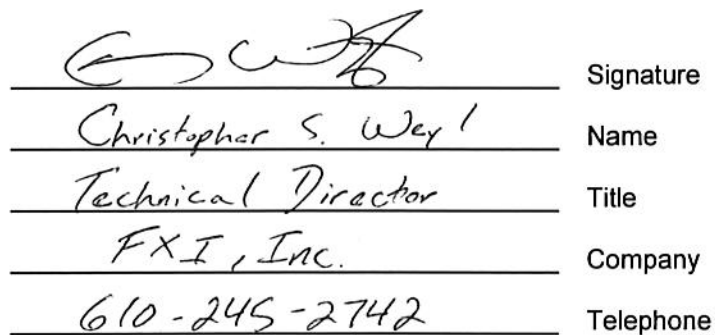 Signature
Christopher S. Weyl Name
Technical Director Title
FXI, Inc. Company
610-245-2742 Telephone